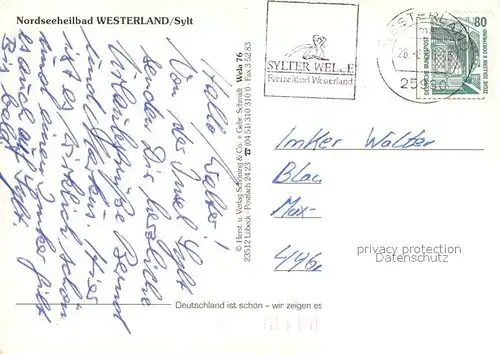 Nordseeheilbad WESTERLAND/Sylt
Hallo Walter!
Von der Insel Sylt
senden Dir herzliche
Urlaubsgrüße Bernd
und Markus. Hier
ist es wirklich schön
und einen Imker gibt
es auch auf Sylt.
Bis bald
© Herst. u. Verlag Schöning & Co. + Gebr. Schmidt Wela 76
23512 Lübeck · Postfach 24 23 ☎ (04 51) 310 310 0 · Fax 3 52 83
SYLTER WELLE
Freizeitbad Westerland
WESTERLAND
26.
25980
80
DEUTSCHE BUNDESPOST
ZECHE ZOLLERN II DORTMUND
Imker Walter
Blau
Max-
446
privacy protection
Datenschutz
Deutschland ist schön – wir zeigen es